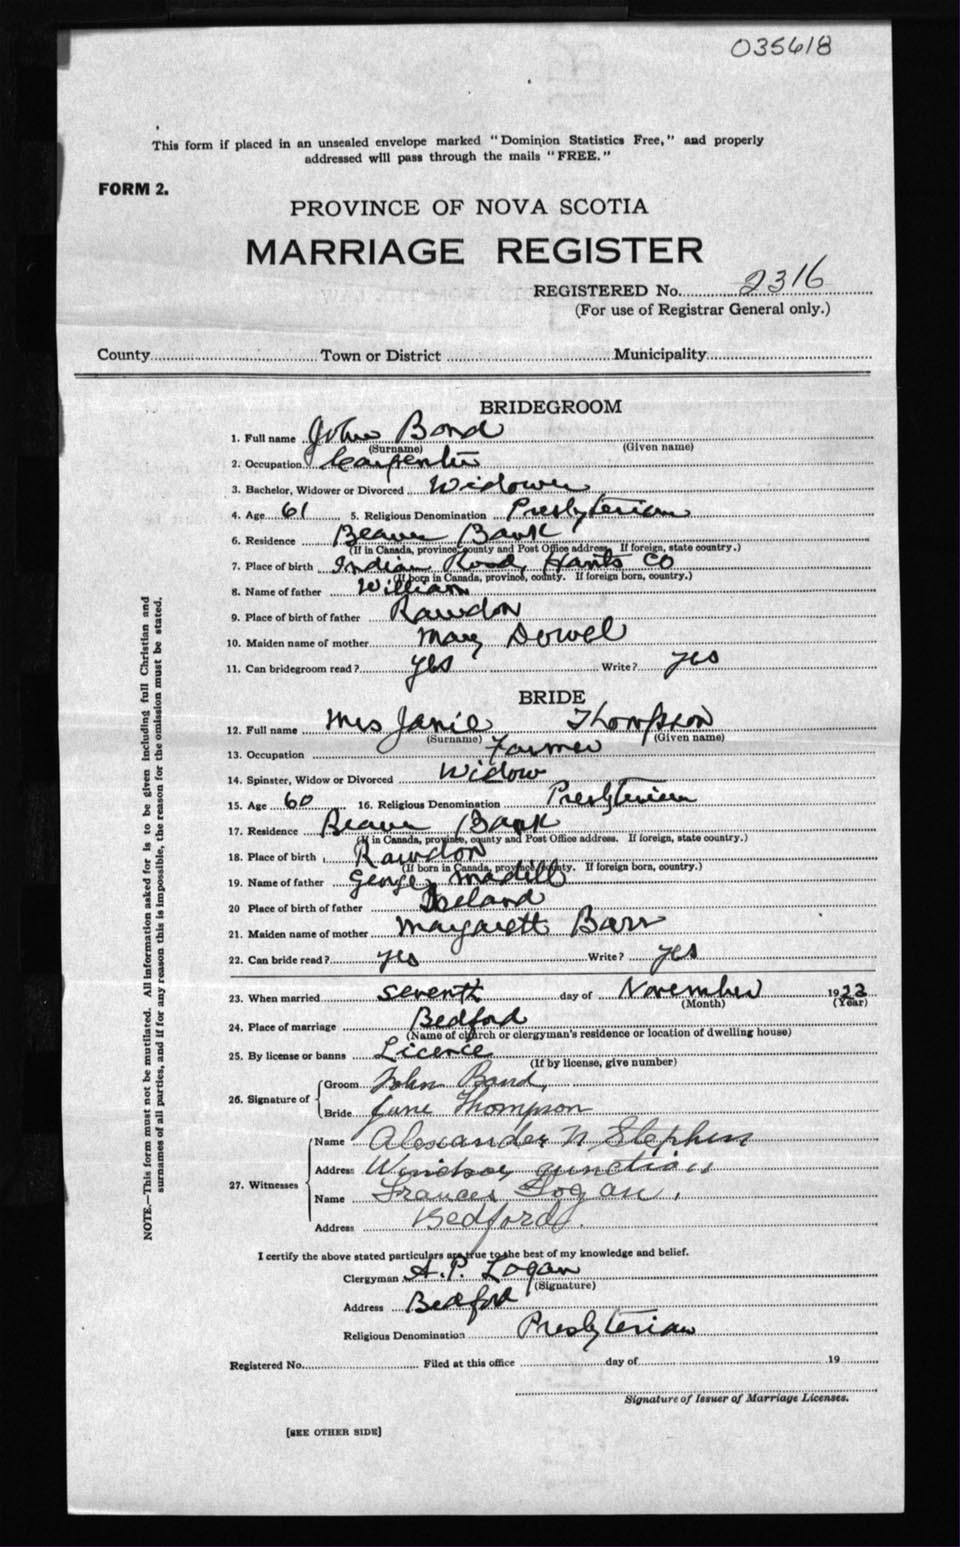 035618
This form if placed in an unsealed envelope marked "Dominion Statistics Free," and properly
addressed will pass through the mails "FREE."
FORM 2.
PROVINCE OF NOVA SCOTIA
MARRIAGE REGISTER
REGISTERED No. 2316
(For use of Registrar General only.)
County Town or District Municipality
BRIDEGROOM
1. Full name John Bond
(Surname) (Given name)
2. Occupation Carpenter
3. Bachelor, Widower or Divorced Widower
4. Age 61 5. Religious Denomination Presbyterian
6. Residence Beaver Bank
(If in Canada, province, county and Post Office address. If foreign, state country.)
7. Place of birth Indian Road, Hants Co
(If born in Canada, province, county. If foreign born, country.)
8. Name of father William
9. Place of birth of father Rawdon
10. Maiden name of mother Mary Dowel
11. Can bridegroom read? yes Write? yes
BRIDE
12. Full name Mrs Janie Thompson
(Surname) (Given name)
13. Occupation Farmer
14. Spinster, Widow or Divorced Widow
15. Age 60 16. Religious Denomination Presbyterian
17. Residence Beaver Bank
(If in Canada, province, county and Post Office address. If foreign, state country.)
18. Place of birth Rawdon
(If born in Canada, province, county. If foreign born, country.)
19. Name of father George Madill
20 Place of birth of father Ireland
21. Maiden name of mother Margarett Barr
22. Can bride read? yes Write? yes
23. When married seventh day of November 1923
(Month) (Year)
24. Place of marriage Bedford
(Name of church or clergyman's residence or location of dwelling house)
25. By license or banns Licence
(If by license, give number)
26. Signature of Groom John Bond,
Bride Jane Thompson
27. Witnesses Name Alexander N Stephen
Address Windsor Junction
Name Frances Logan,
Address Bedford.
I certify the above stated particulars are true to the best of my knowledge and belief.
Clergyman A. P. Logan
(Signature)
Address Bedford
Religious Denomination Presbyterian
Registered No. Filed at this office day of 19
Signature of Issuer of Marriage Licenses.
[SEE OTHER SIDE]
NOTE.—This form must not be mutilated. All information asked for is to be given including full Christian and
surnames of all parties, and if for any reason this is impossible, the reason for the omission must be stated.